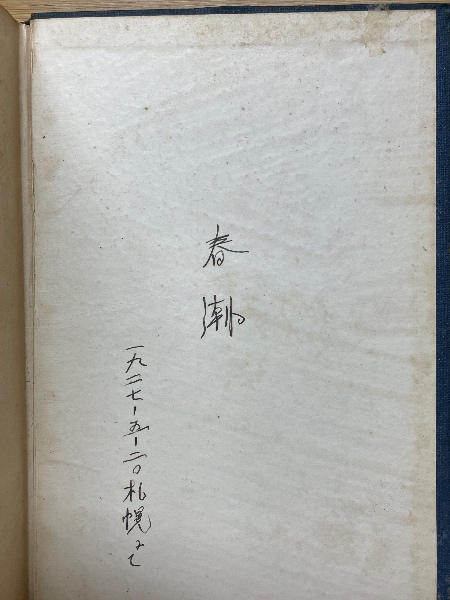 春潮
一九二七-五-二〇札幌にて